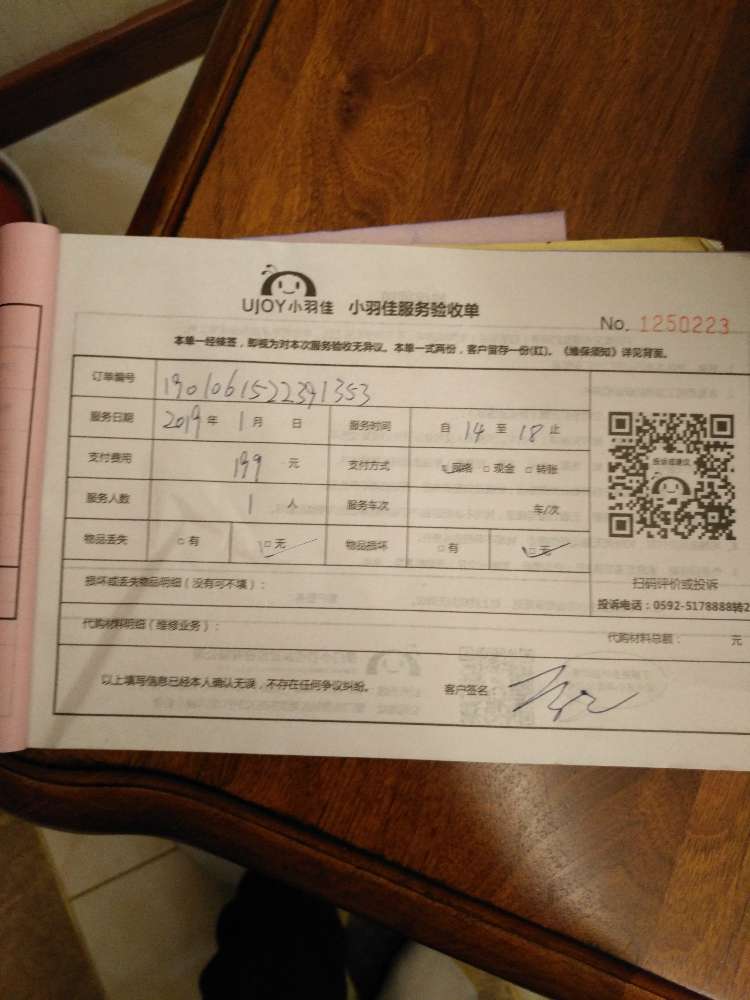 UJOY小羽佳 小羽佳服务验收单
No. 1250223
本单一经接签，即视为对本次服务验收无异议。本单一式两份，客户留存一份(红)。《维保须知》详见背面。
订单编号 1901061522391353
服务日期 2019 年 1 月 日 服务时间 自 14 至 18 止
支付费用 199 元 支付方式 □网络 □现金 □转账
投诉或建议
服务人数 1 人 服务车次 车/次
物品丢失 □有 □无 物品损坏 □有 □无
损坏或丢失物品明细（没有可不填）：
扫码评价或投诉
投诉电话：0592-5178888转2
代购材料明细（维修业务）： 代购材料总额： 元
以上填写信息已经本人确认无误，不存在任何争议纠纷。 客户签名：